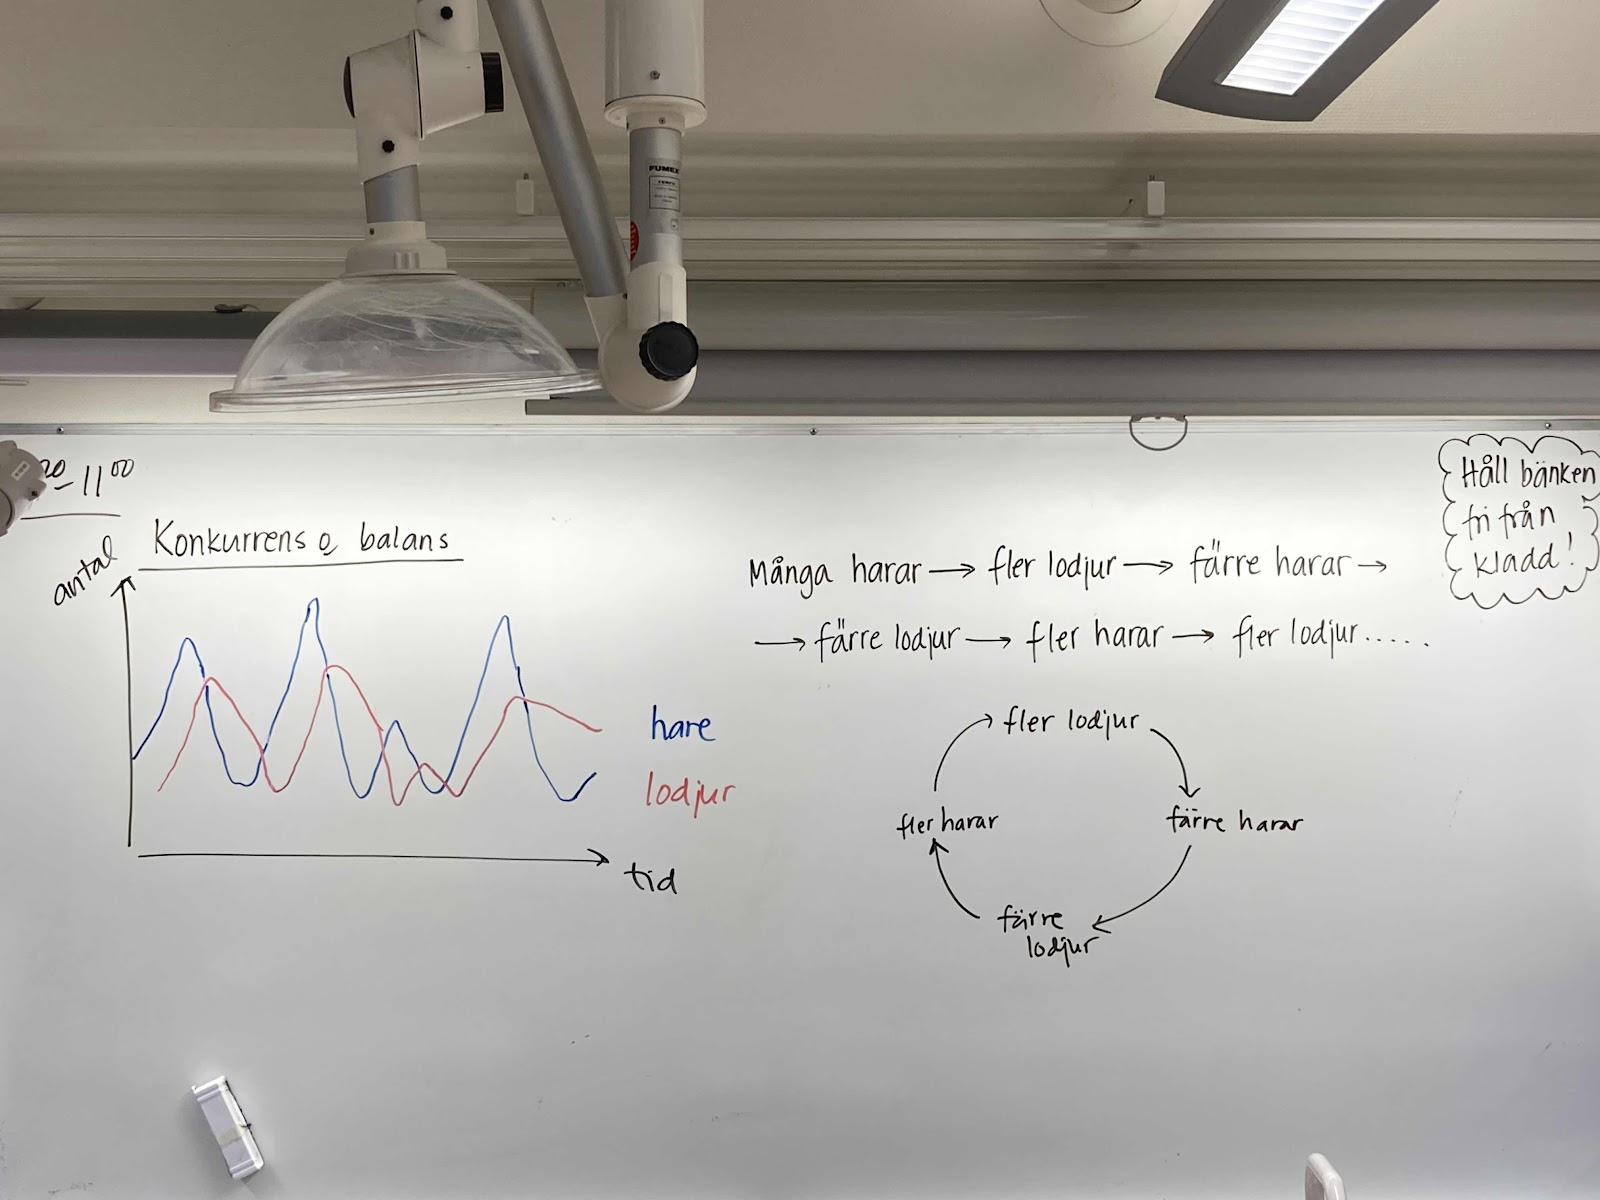 FUMEX
20-11 00
Konkurrens o balans
antal
hare
lodjur
tid
Många harar → fler lodjur → färre harar →
→ färre lodjur → fler harar → fler lodjur.....
fler lodjur
fler harar
färre harar
färre
lodjur
Håll bänken
fri från
kladd!